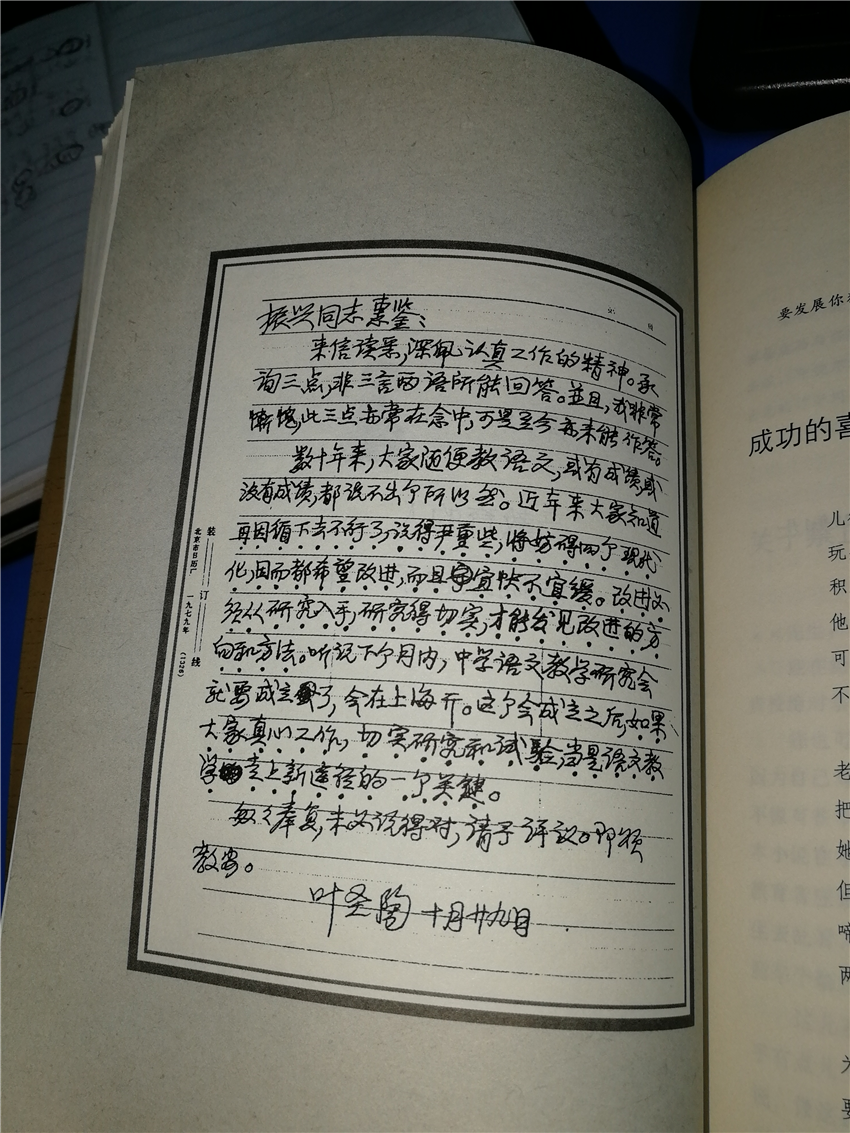 振兴同志惠鉴：
来信读悉，深佩认真工作的精神。承
询三点，非三言两语所能回答。並且，我非常
惭愧，此三点亦常在念中，可是至今亦未能作答。
数十年来，大家随便教语文，或有成绩，或
没有成绩，都说不出个所以然。近年来大家知道
再因循下去不行了，说得严重些，将妨碍四个现代
化，因而都希望改进，而且宜快不宜缓。改进必
须从研究入手，研究得切实，才能发见改进的方
向和方法。听说下个月内，中学语文教学研究会
就要成立了，会在上海开。这个会成立之后，如果
大家真心工作，切实研究和试验，当是语文教
学走上新途径的一个关键。
匆匆奉复，未必说得对，请予评议。即颂
教安。
叶圣陶 十月廿九日
装订线
北京市日历厂 一九七九年 (1326)
要发展你
成功的喜
儿
玩
积
他
可
不
老
把
她
但
啼
两
为
要